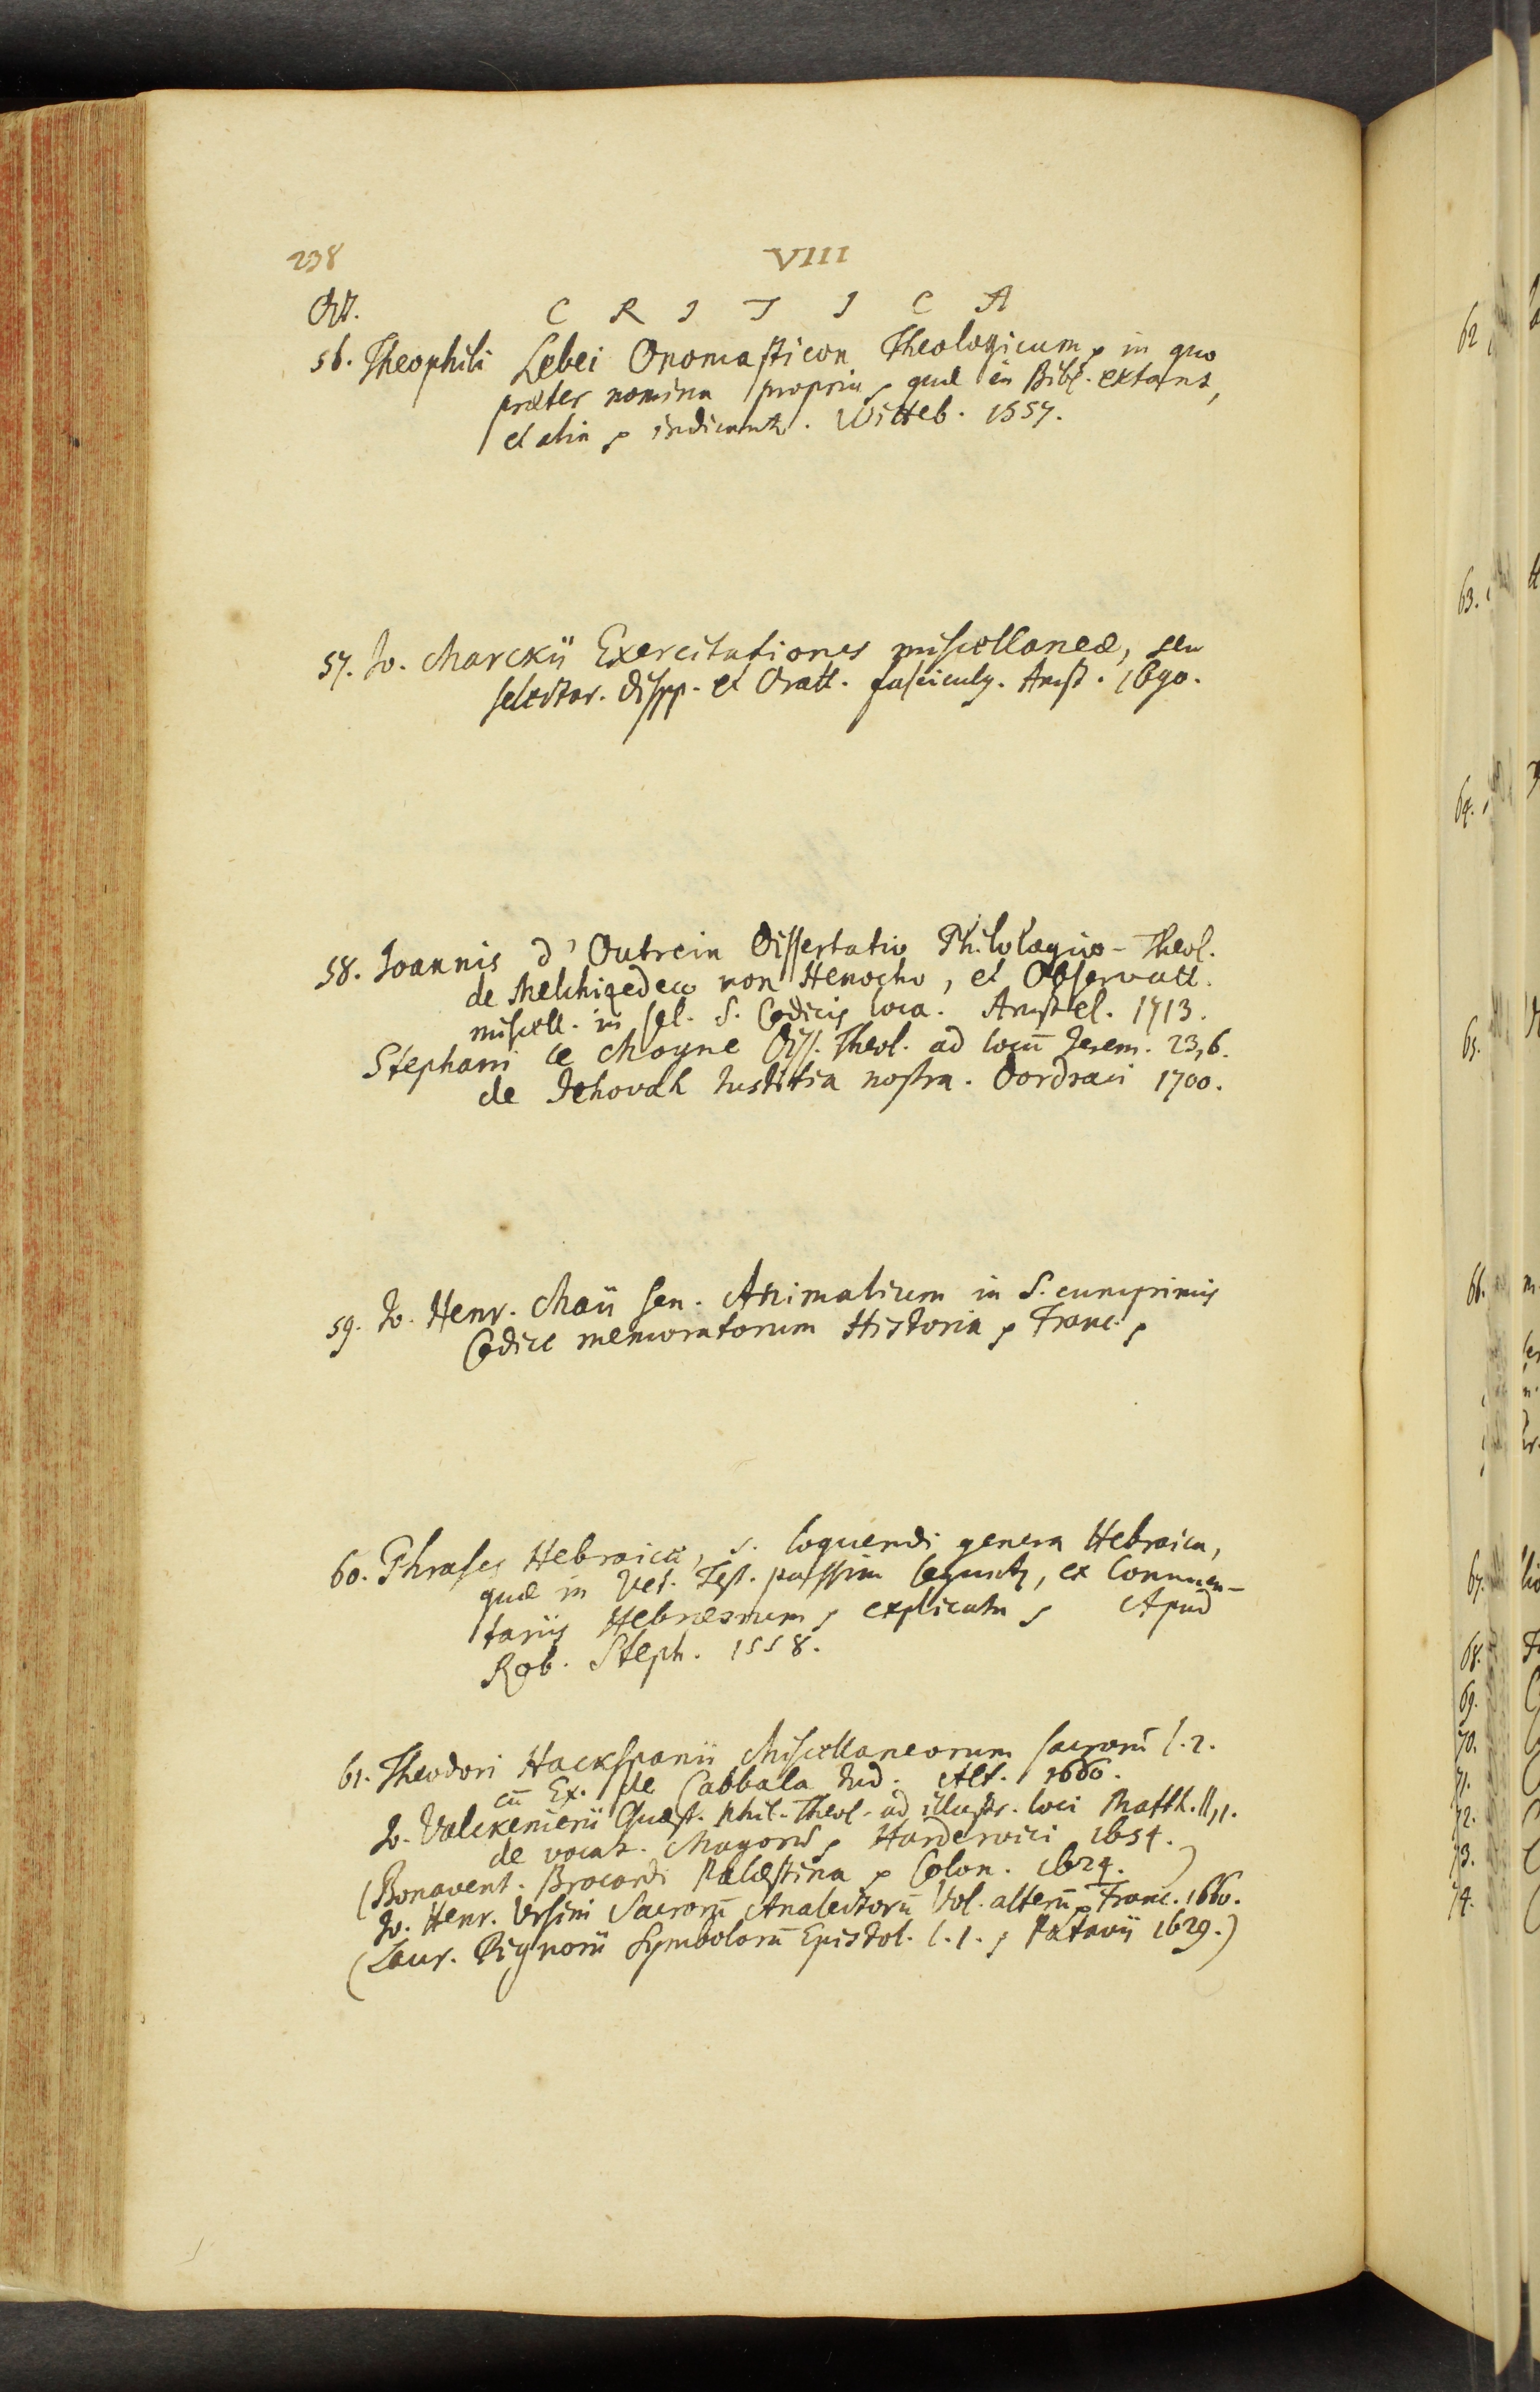 238
VIII
Oct.
C R I T I C A
56. Theophili Lebei Onomasticon Theologicum, in quo
præter nomina propria, quæ in Bibl. extant,
et alia, indicantr. Witteb. 1557.
57. Jo. Marckii Exercitationes miscellaneæ, seu
selectar. Dispp. et Oratt. fasciculg. Amst. 1690.
58. Joannis d'Outrein Dissertatio Philologico-Theol.
de Melchizedeco non Henocho, et Observatt.
miscell. in sel. S. Codicis loca. Amstel. 1713.
Stephani le Moyne Diss. Theol. ad locū Jerem. 23,6.
de Jehovah Justitia nostra. Dordraci 1700.
59. Jo. Henr. Maii sen. Animalium in S. cumprimis
Codice memoratorum Historia, Franc.,
60. Phrases Hebraicæ, s. loquendi genera Hebraica,
quæ in Vet. Test. passim leguntr, ex Commen-
tariis Hebræorum, explicata, Apud
Rob. Steph. 1558.
61. Theodori Hackspanii Miscellaneorum sacrorū l. 2.
cū Ex. de Cabbala Jud. Alt. 1660.
Jo. Valckenierii Quæst. Phil-Theol. ad illustr. loci Matth. II,1.
de vocat. Magorū, Harderwici 1654.
(Bonavent. Brocardi Palæstina, Colon. 1624.)
Jo. Henr. Ursini Sacrorū Analectorū Vol. alterū, Franc. 1660.
(Laur. Pignorii Symbolorū Epistol. l. 1., Patavii 1629.)
62
63.
64.
65.
66.
67.
68.
69.
70.
71.
72.
73.
74.